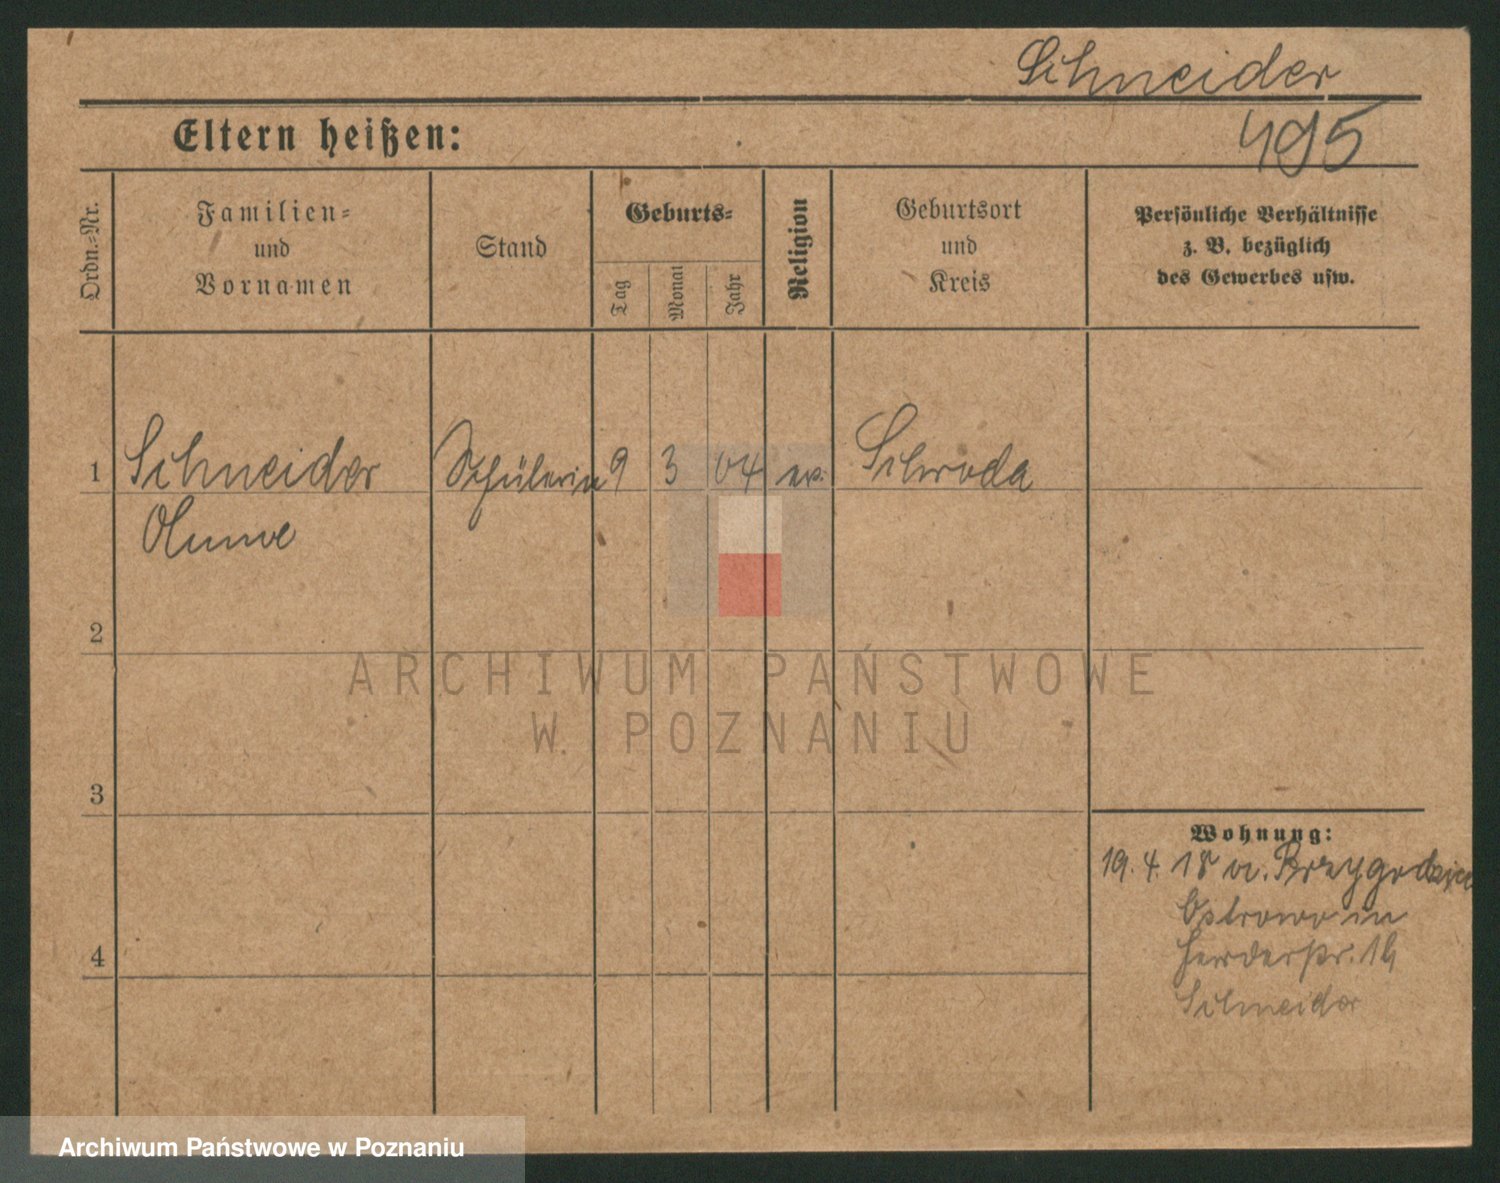 Schneider
495
Eltern heißen:
Ordn.-Nr.
Familien-
und
Vornamen
Stand
Geburts-
Tag
Monat
Jahr
Religion
Geburtsort
und
Kreis
Persönliche Verhältnisse
z. B. bezüglich
des Gewerbes usw.
1 Schneider Schülerin 9 3 04 ev. Schroda
2
ARCHIWUM PAŃSTWOWE
W POZNANIU
3
Wohnung:
19. 4. 18 Przygodzice
Ostrowo in
4 Herderstr. 16
Schneider
Archiwum Państwowe w Poznaniu